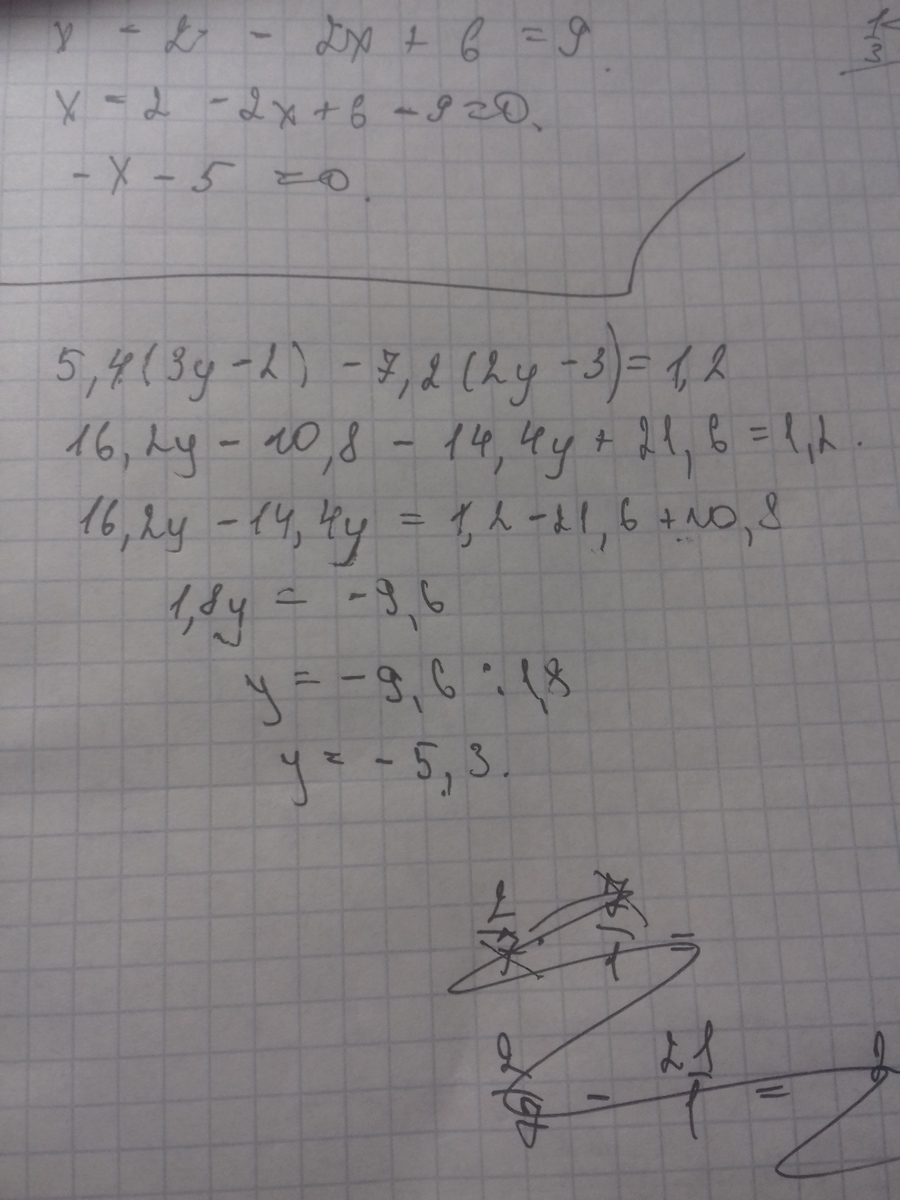 x - 2 - 2x + 6 = 9
x - 2 - 2x + 6 - 9 = 0.
- x - 5 = 0.
5,4(3y - 2) - 7,2(2y - 3) = 1,2
16,2y - 10,8 - 14,4y + 21,6 = 1,2.
16,2y - 14,4y = 1,2 - 21,6 + 10,8
1,8y = - 9,6
y = - 9,6 : 1,8
y = - 5,3.